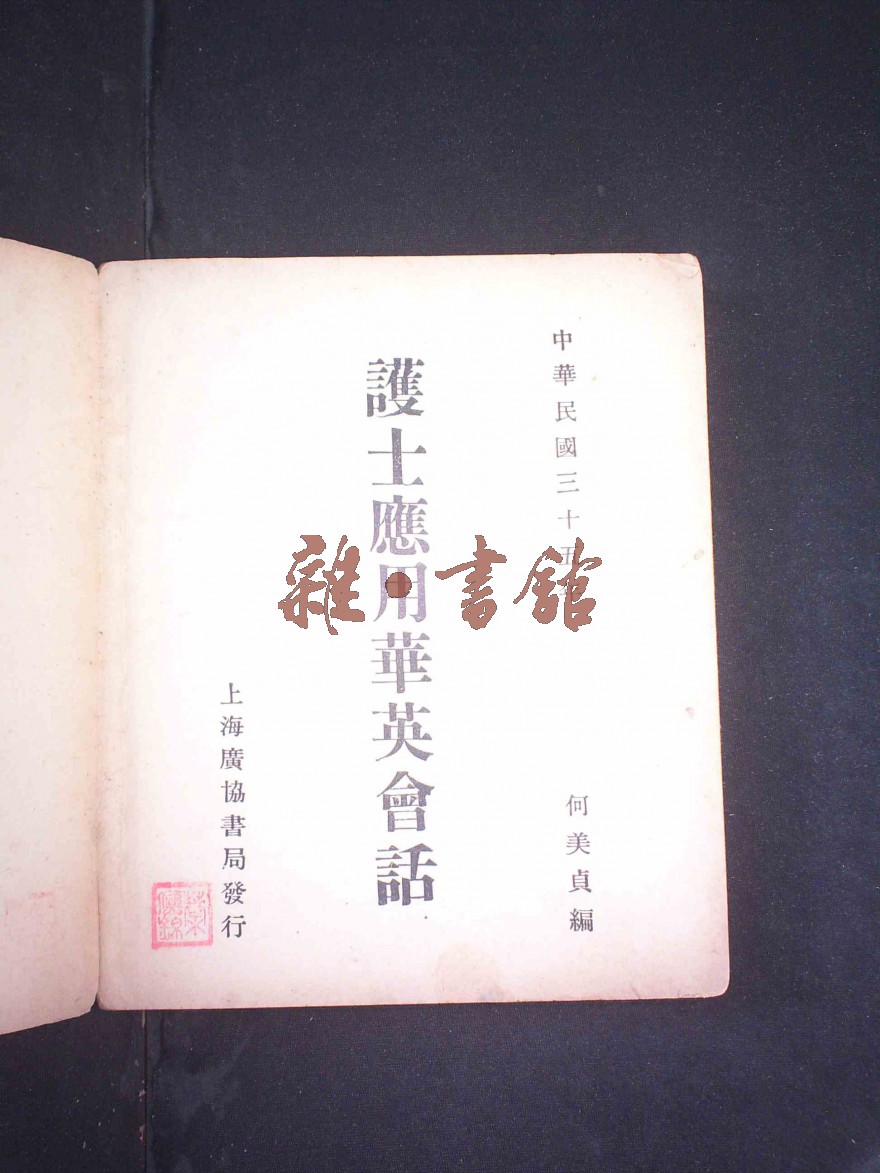 中華民國三十五年
何美貞編
護士應用華英會話
上海廣協書局發行
雜·書館